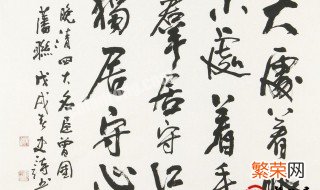 大處着眼
小處着手
羣居守口
獨居守心
晚清四大名臣曾國
藩聯戊戌
繁荣网